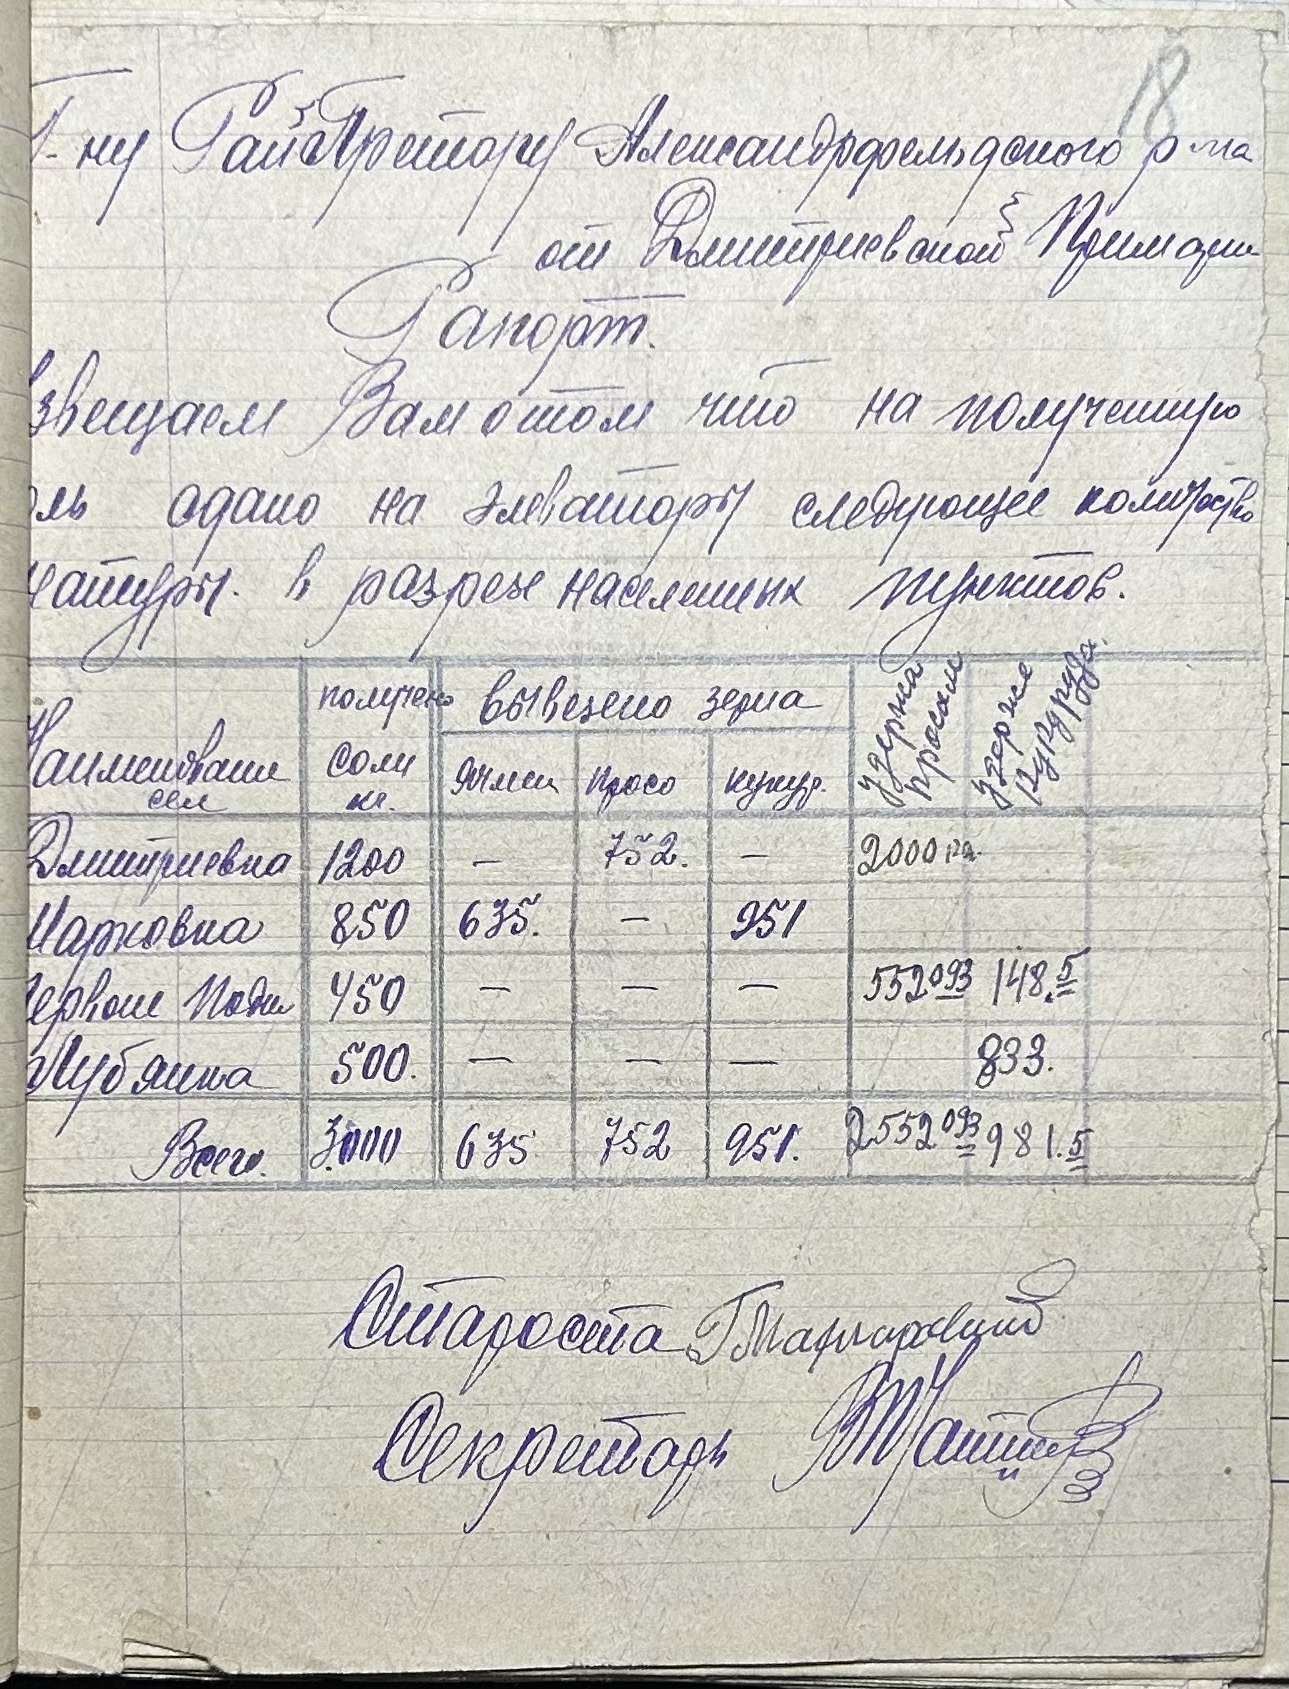 18
Г-ну РайПретору Александрфельдского р-на
от Дмитриевской Примарии
Рапорт.
Извещаем Вам отом что на полученную
оль сдано на элеваторы следующее количество
натуры. в разрезе населенных пунктов.
Наименование сел | получено соли кг. | вывезено зерна | удержа просом | удержа кукурузаю.
ячмен | просо | кукур.
Дмитриевка | 1200 | – | 752. | – | 2000 кг.
Марковка | 850 | 635. | – | 951
Первое Поди | 450 | – | – | – | 552 093 | 148.5
Лубянка | 500. | – | – | – | | 833.
Всего. | 3.000 | 635 | 752 | 951. | 2552 093 | 981.5
Староста
Секретарь